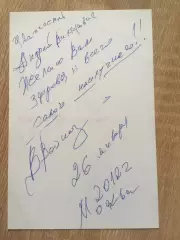 Андрей Викторович
Желаю Вам
здоровья и всего
самого наилучшего!!
26 января
2012 г
Москва